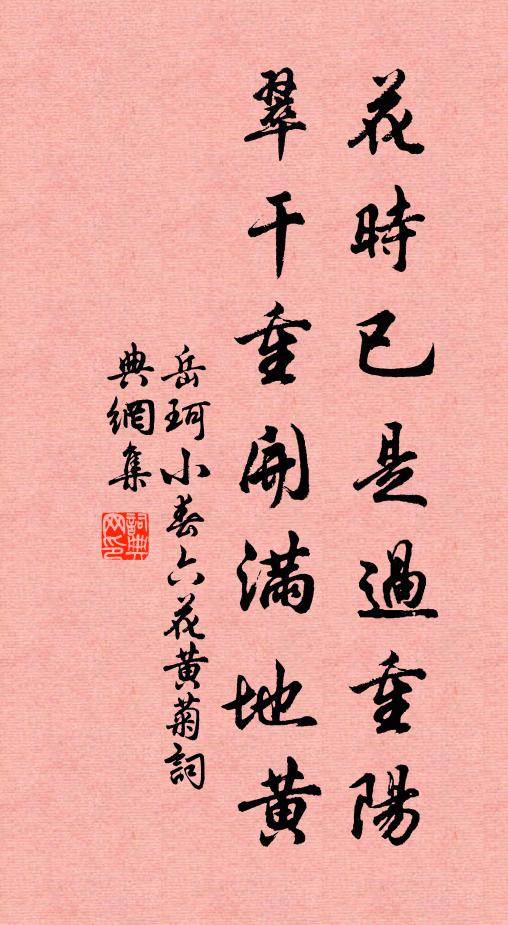 花時已是過重陽
翠干重開滿地黃
岳珂小春六花黃菊詞
典網集
詞典網印